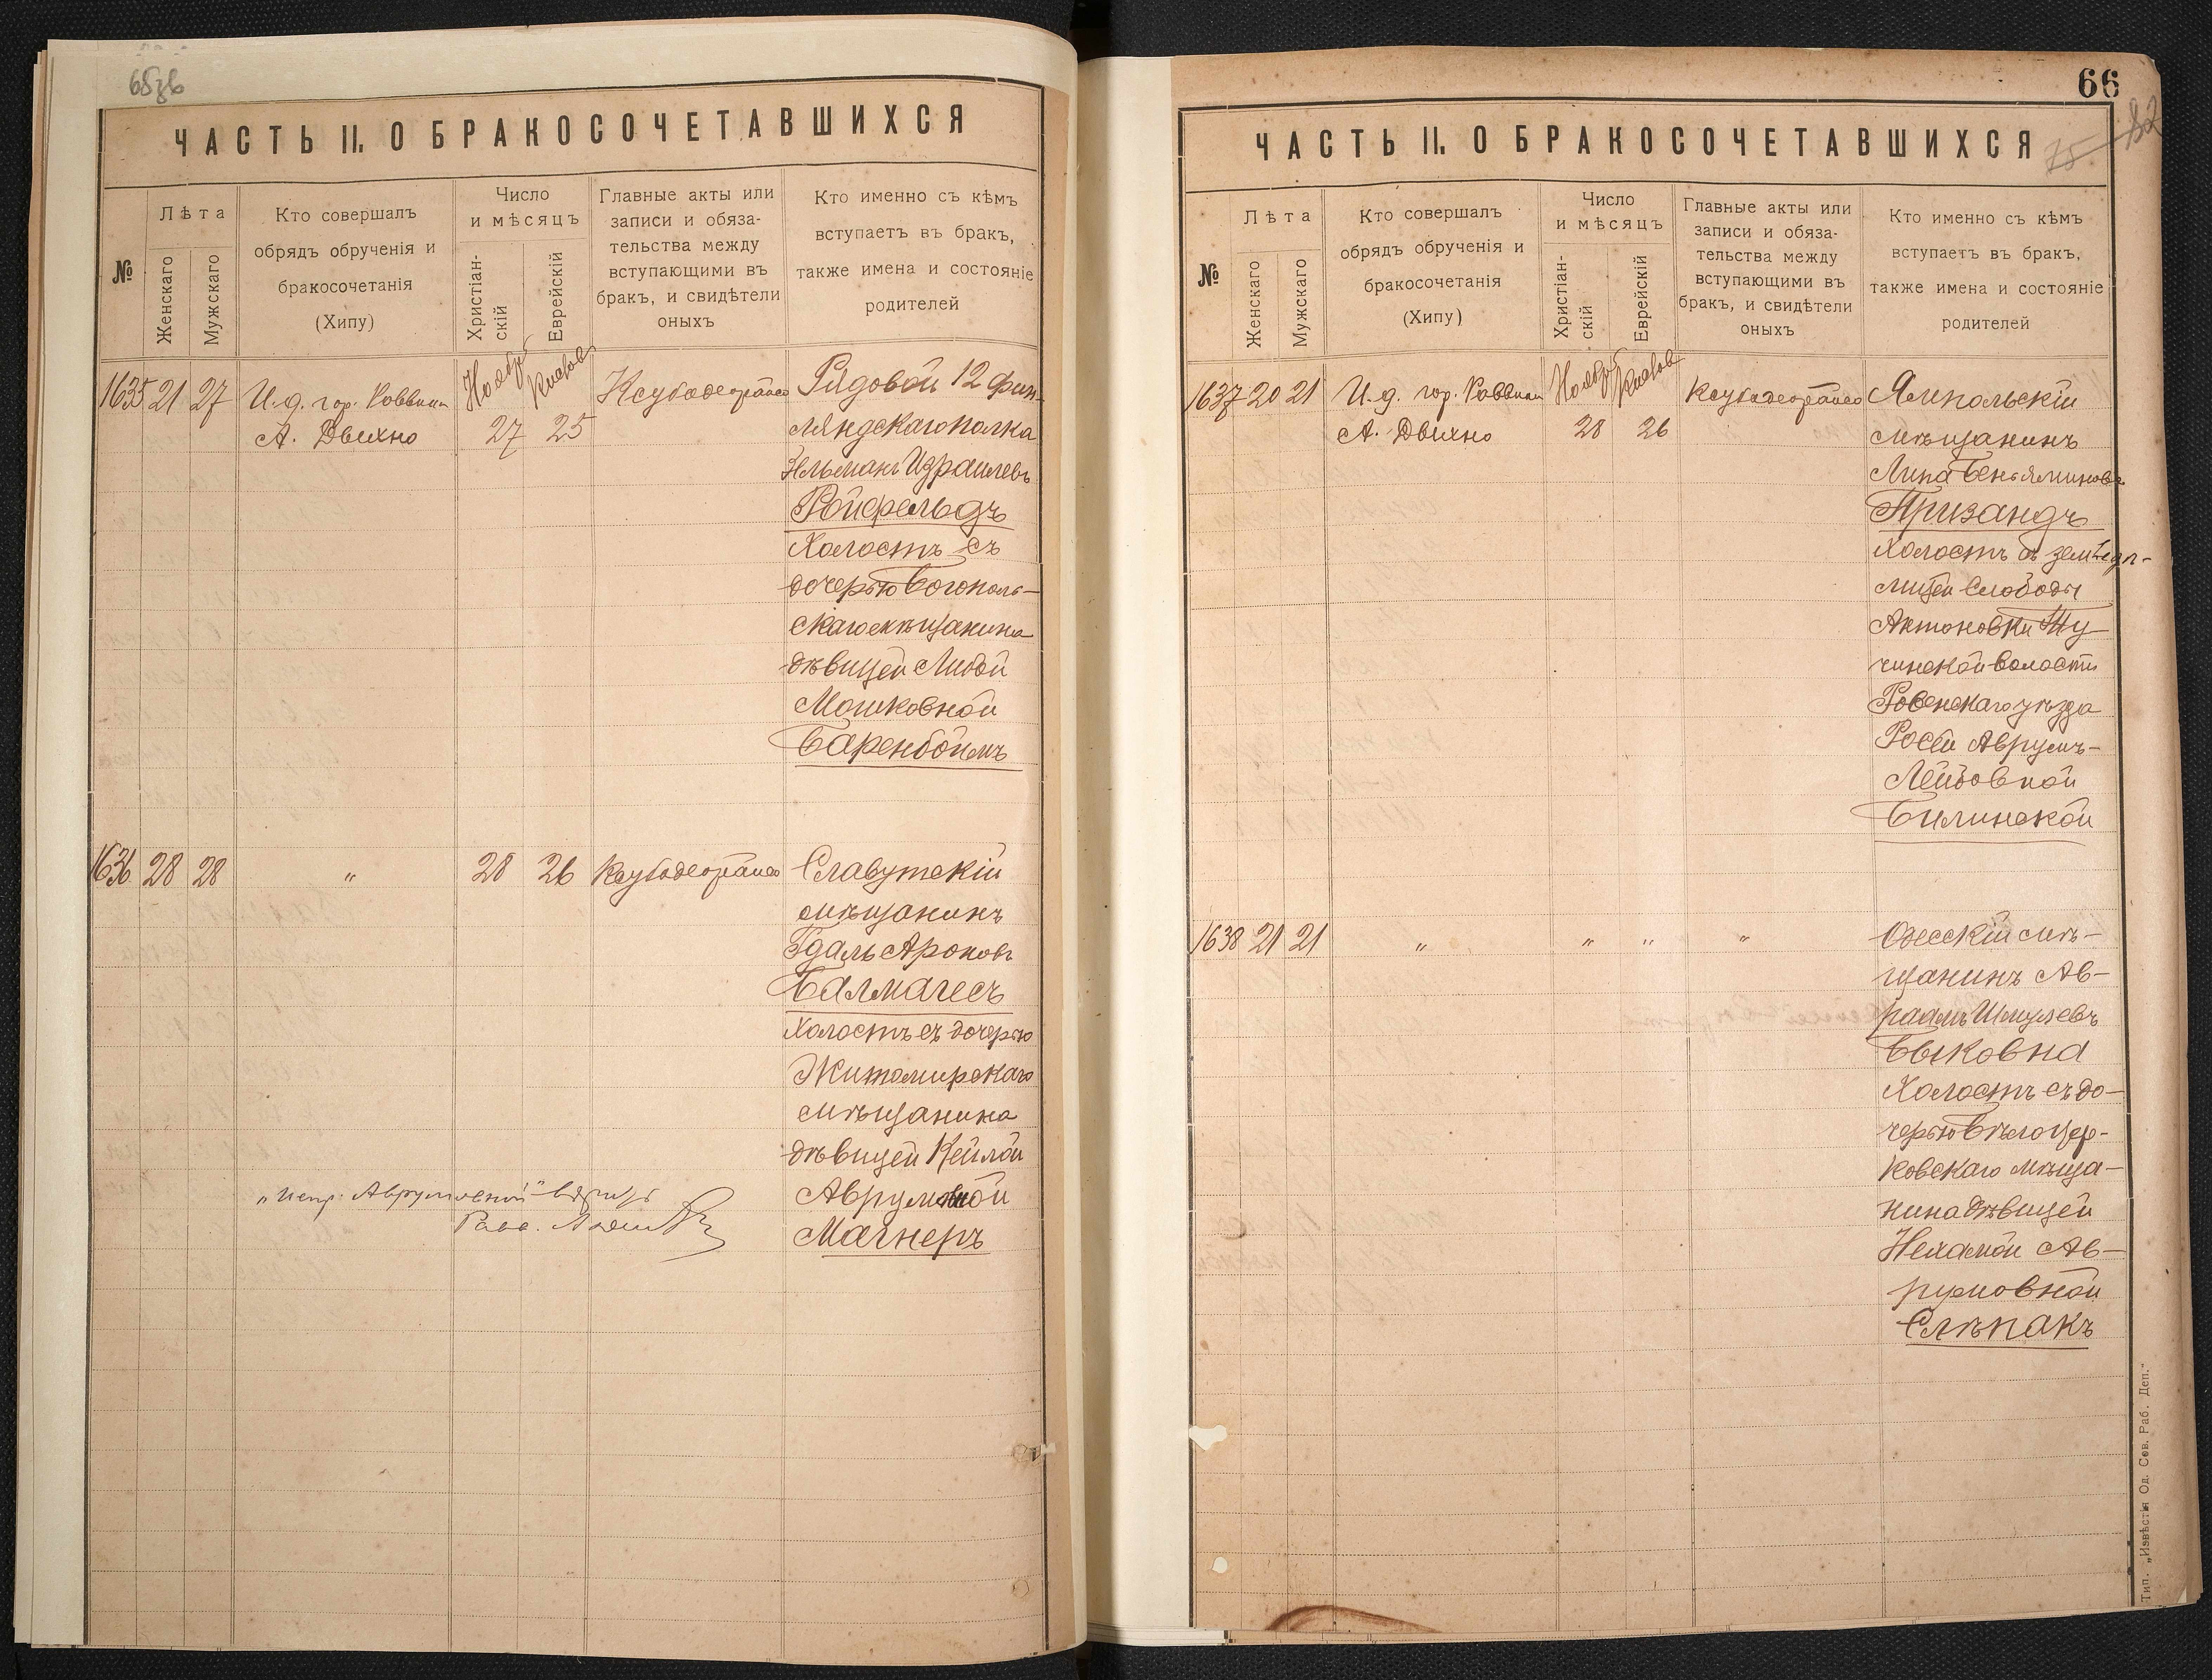 65зв
ЧАСТЬ II. О БРАКОСОЧЕТАВШИХСЯ
№
Лѣта
Женскаго
Мужскаго
Кто совершалъ
обрядъ обрученія и
бракосочетанія
(Хипу)
Число
и мѣсяцъ
Христіан-
скій
Еврейскій
Главные акты или
записи и обяза-
тельства между
вступающими въ
бракъ, и свидѣтели
оныхъ
Кто именно съ кѣмъ
вступаетъ въ бракъ,
также имена и состояніе
родителей
1635 21 27
И.д. гор. Раввина
А. Двихно
Ноября
27
Кислова
25
Рядовой 12 Фин-
ляндскаго полка
Зельманъ Израилевъ
Ройфельдъ
Холостъ съ
дочерью Богополь-
скаго мѣщанина
дѣвицей Любой
Мошковной
Баренбоймъ
1636 28 28 " 28 26
Славутскій
мѣщанинъ
Гдаль Ароновъ
Балмагесъ
Холостъ съ дочерью
Житомирскаго
мѣщанина
дѣвицей Кейлой
Аврумовной
Магнеръ
"испр. Аврумовной"
Равв.
66
82
75
ЧАСТЬ II. О БРАКОСОЧЕТАВШИХСЯ
№
Лѣта
Женскаго
Мужскаго
Кто совершалъ
обрядъ обрученія и
бракосочетанія
(Хипу)
Число
и мѣсяцъ
Христіан-
скій
Еврейскій
Главные акты или
записи и обяза-
тельства между
вступающими въ
бракъ, и свидѣтели
оныхъ
Кто именно съ кѣмъ
вступаетъ въ бракъ,
также имена и состояніе
родителей
1637 20 21
И.д. гор. Раввина
А. Двихно
Ноября
28
Кислова
26
Ямпольскій
мѣщанинъ
Липа Беньяминовъ
Призандъ
Холостъ съ
Слободы
Антоновки Ту-
чинской волости
Ровенскаго уѣзда
Росей Аврумъ-
Лейбовной
Билинской
1638 21 21 " " " "
Одесскій мѣ-
щанинъ Ав-
раамъ Шмулевъ
Быковна
Холостъ съ до-
черью Бѣлоцер-
ковскаго мѣща-
нина дѣвицей
Нехамой Ав-
румовной
Слѣпакъ
Тип. „Извѣстія Од. Сов. Раб. Деп."